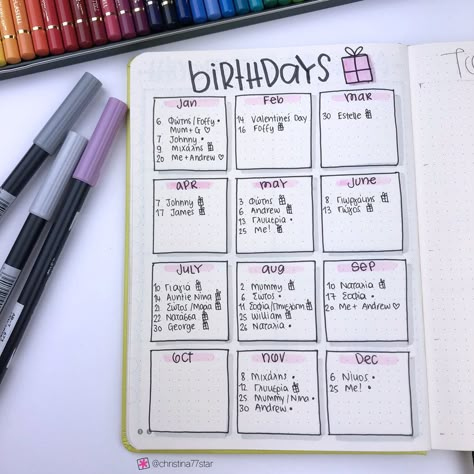 BIRTHDAYS
Jan
6 Φώτης/Foffy •
Mum+G ♡
7 Johnny •
9 Μιχάλης
20 Me+Andrew ♡
Feb
14 Valentines Day
16 Foffy
Mar
30 Estelle
Apr
7 Johnny
17 James
May
3 Φώτης
6 Andrew
13 Γλυκερία •
25 Me!
June
8 Γιωργάκης
13 Γιώργος
July
10 Γιαγιά
14 Auntie Nina
21 Σώτος/Μάρω
22 Νατάσσα
30 George
Aug
2 Mummy
6 Σώτος •
11 Σοφία/
25 William
26 Ναταλία •
Sep
10 Ναταλία
17 Σοφία •
20 Me + Andrew ♡
Oct
Nov
8 Μιχάλης •
12 Γλυκερία
25 Mummy/Nina •
30 Andrew •
Dec
6 Νίκος •
25 Me! •
@christina77star